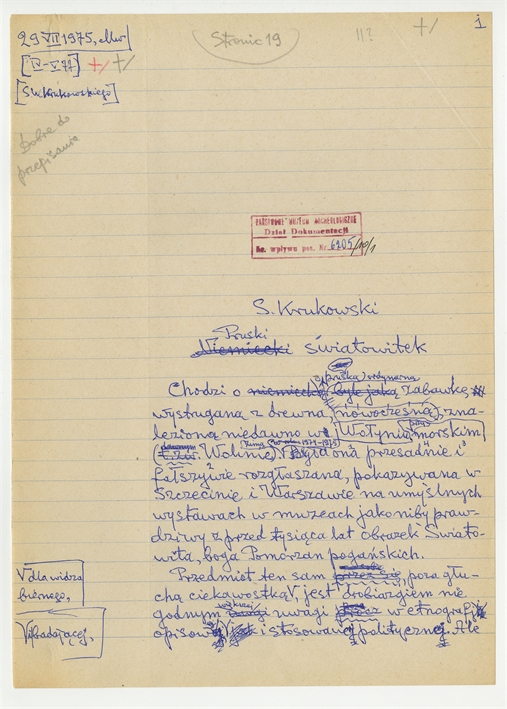 29 VII 1975,
1
Stronic 19
[IV-V 77]
[Św. Krukowskiego]
Dobre do
przepisania
PAŃSTWOWE MUZEUM ARCHEOLOGICZNE
Dział Dokumentacji
Ks. wpływu poz. Nr. 6205/10/1
S. Krukowski
Pruski
Niemiecki światowitek
pruską, ordynarną
Chodzi o niemiecką byle jaką zabawkę
wystruganą z drewna (nowoczesną), zna-
lezioną niedawno w
zimą 1974-1975
Wolinie. Była ona przesadnie i
fałszywie rozgłaszana, pokazywana w
Szczecinie i Warszawie na umyślnych
wystawach w muzeach jako niby praw-
dziwy z przed tysiąca lat obrazek Świato-
wita, boga Pomorzan pogańskich.
Przedmiot ten sam przez się, poza głu-
chą ciekawostką, jest drobiazgiem nie
godnym uwagi w etnografii
opisowej i stosowanej politycznej. Ale
V dla widza
bieżnego,